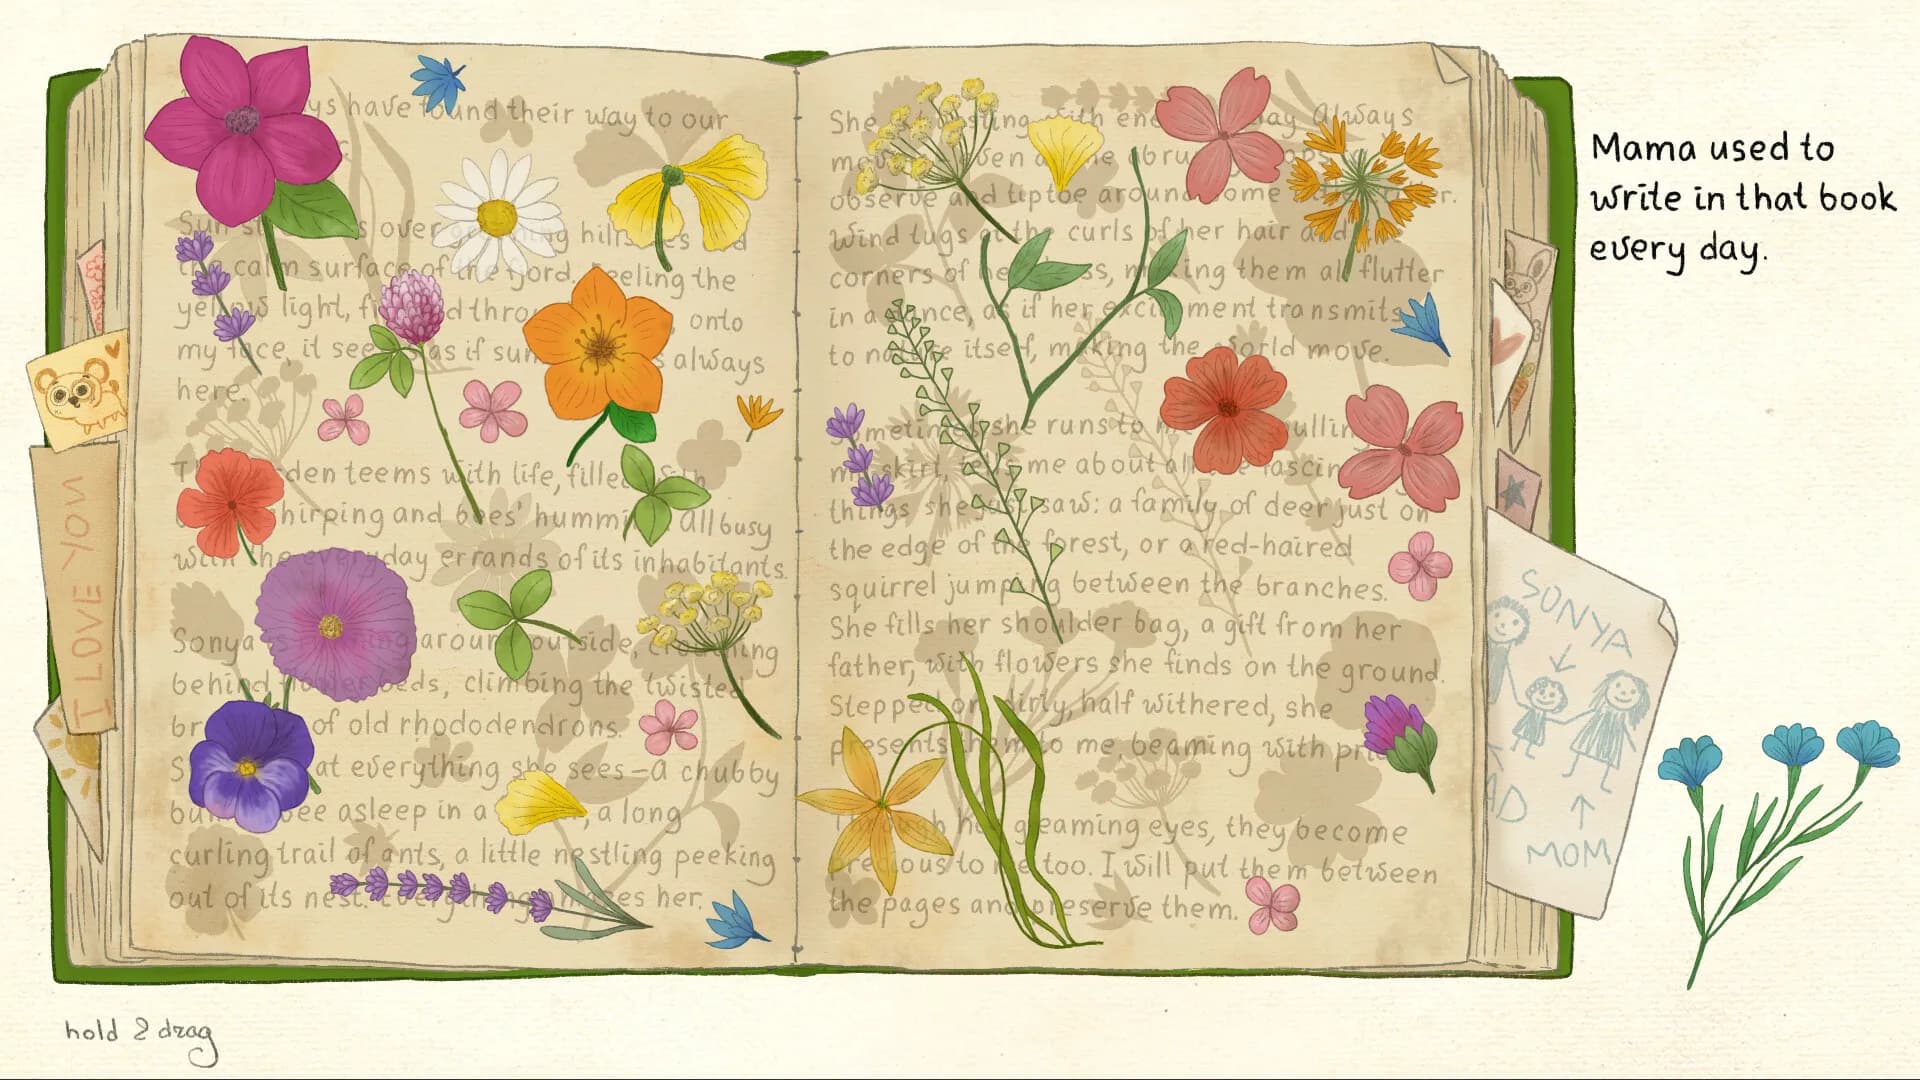 have found their way to our
over hills
calm surface of the fjord. Feeling the
yellows light, onto
my face, it seems as if sun always
here.
teems with life, filled with
chirping and bees' humming. All busy
with the everyday errands of its inhabitants.
Sonya is running around outside, crouching
behind flower beds, climbing the twisted
of old rhododendrons.
at everything she sees—a chubby
bumblebee asleep in a a long
curling trail of ants, a little nestling peeking
out of its nest. Everything her.
She with Always
me even
observe and tiptoe around some
Wind tugs at the curls of her hair and
corners of her dress, making them all flutter
in a dance, as if her excitement transmits
to nature itself, making the world move.
Sometimes she runs to pulling
my skirt, tells me about all the
things she just saw: a family of deer just on
the edge of the forest, or a red-haired
squirrel jumping between the branches.
She fills her shoulder bag, a gift from her
father, with flowers she finds on the ground.
Stepped on, dirty, half withered, she
presents them to me, beaming with
Through her gleaming eyes, they become
precious to me too. I will put them between
the pages and preserve them.
Mama used to
write in that book
every day.
I LOVE YOU
SONYA
MOM
hold & drag